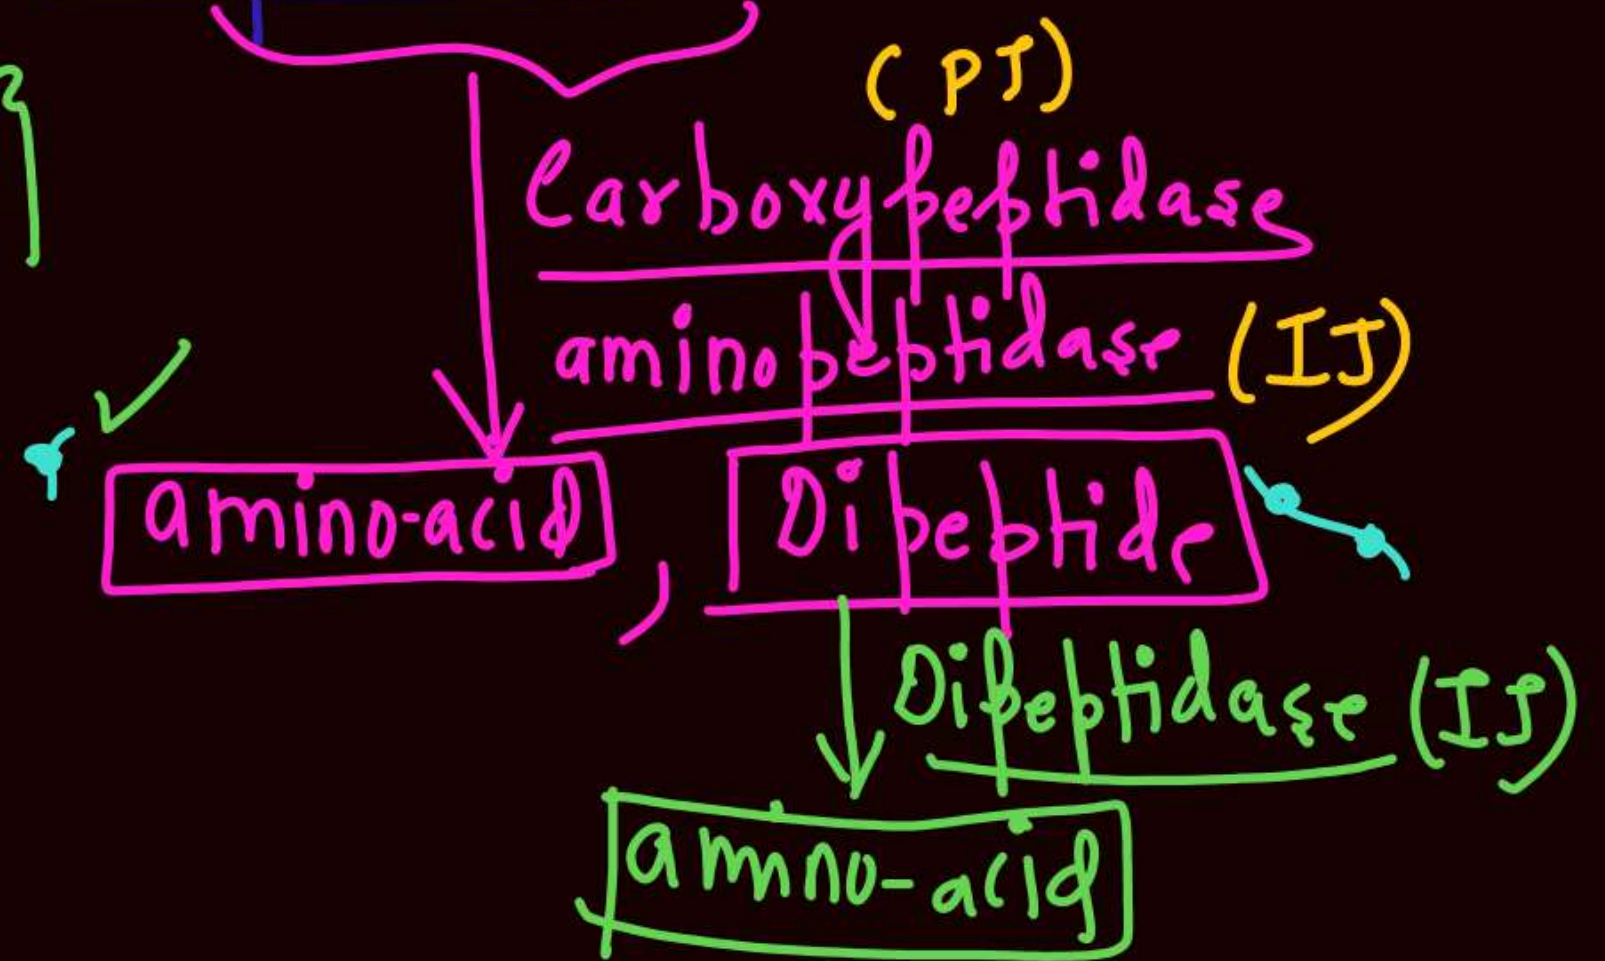 (PJ)
Carboxypeptidase
aminopeptidase (IJ)
amino-acid, Dipeptide
Dipeptidase (IJ)
amino-acid